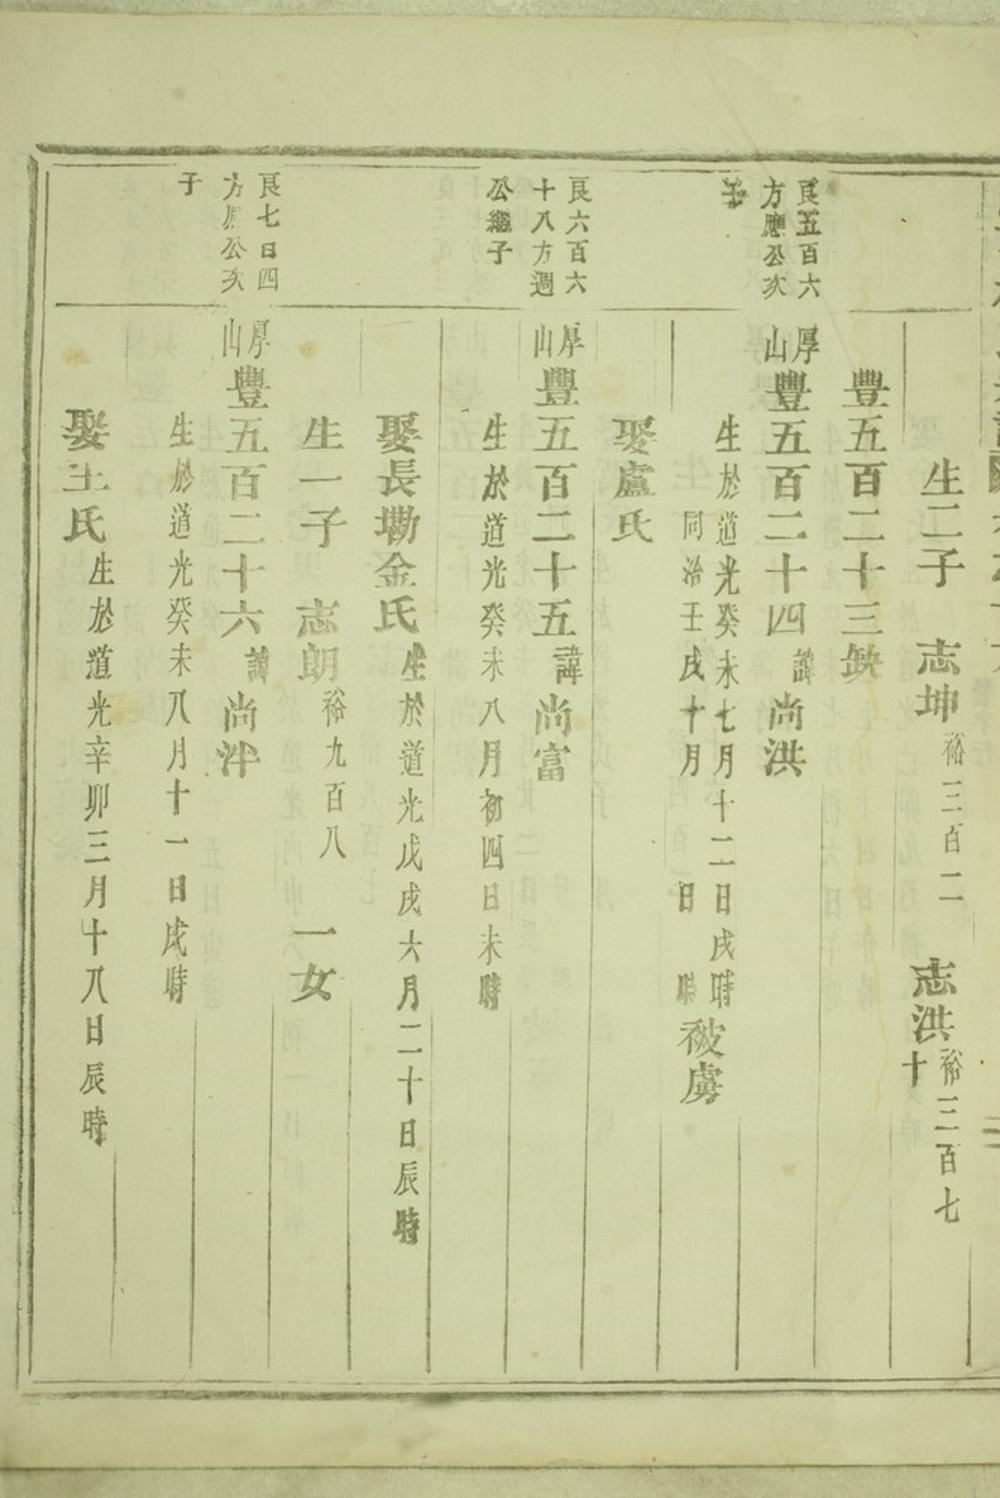 生二子　志坤裕三百二　志洪裕三百七十
豐五百二十三缺
良五百六方應公次子
厚山豐五百二十四諱尚洪
生於道光癸未七月十二日戌時
同治壬戌十月　　日　　時被虜
娶盧氏
良六百六十八方週公繼子
厚山豐五百二十五諱尚富
生於道光癸未八月初四日未時
娶長塘金氏生於道光戊戌六月二十日辰時
生一子　志朗裕九百八　一女
良七百四方應公次子
厚山豐五百二十六諱尚泮
生於道光癸未八月十一日戌時
娶王氏生於道光辛卯三月十八日辰時